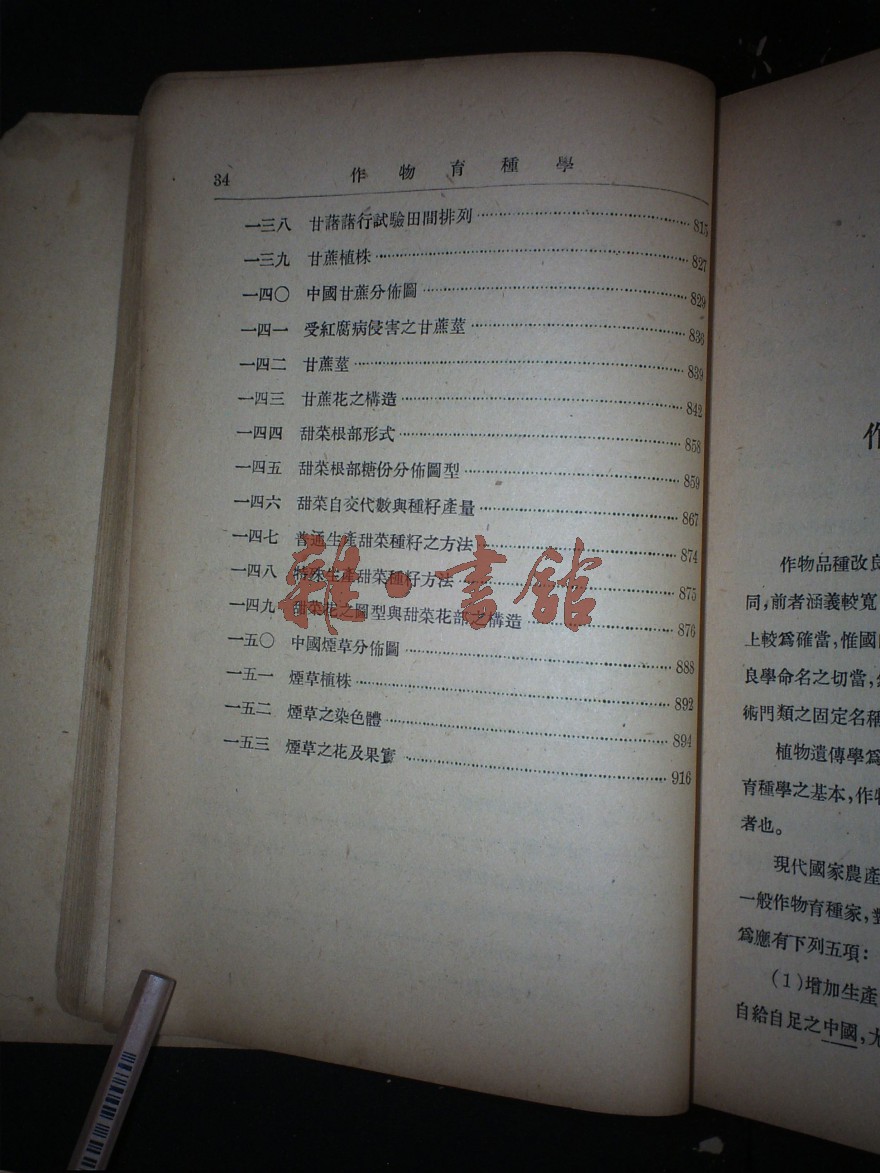 34 作物育種學
一三八 甘藷藷行試驗田間排列 815
一三九 甘蔗植株 827
一四〇 中國甘蔗分佈圖 829
一四一 受紅腐病侵害之甘蔗莖 836
一四二 甘蔗莖 839
一四三 甘蔗花之構造 842
一四四 甜菜根部形式 858
一四五 甜菜根部糖份分佈圖型 859
一四六 甜菜自交代數與種籽產量 867
一四七 普通生產甜菜種籽之方法 874
一四八 特殊生產甜菜種籽方法 875
一四九 甜菜花之圖型與甜菜花部之構造 876
一五〇 中國煙草分佈圖 888
一五一 煙草植株 892
一五二 煙草之染色體 894
一五三 煙草之花及果實 916
雜·書館
作物品種改良
同，前者涵義較寬
上較爲確當，惟國
良學命名之切當，
術門類之固定名稱
植物遺傳學爲
育種學之基本，作物
者也。
現代國家農產
一般作物育種家，對
爲應有下列五項：
（1）增加生產
自給自足之中國，尤